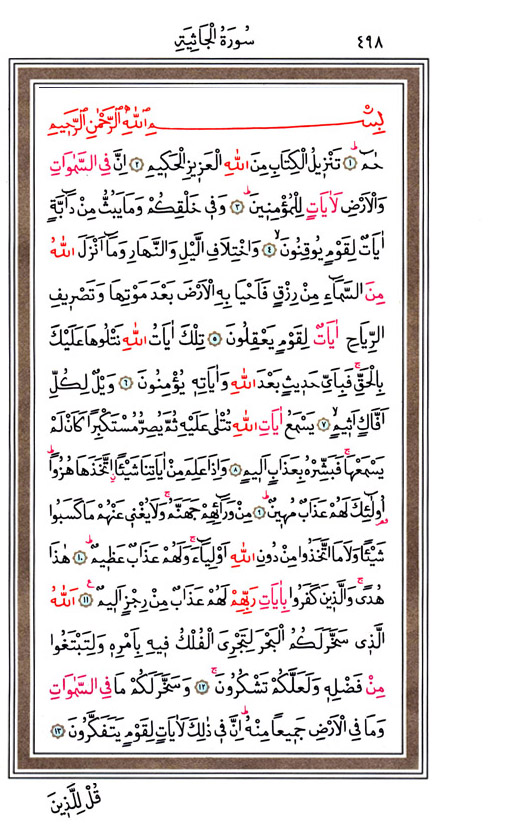 ٤٩٨ سُورَةُ الْجَاثِيَةِ
بِسْمِ اللّٰهِ الرَّحْمٰنِ الرَّحِيمِ
حٰمٓ ۚ ﴿١﴾ تَنْزِيلُ الْكِتَابِ مِنَ اللّٰهِ الْعَزِيزِ الْحَكِيمِ ﴿٢﴾ اِنَّ فِي السَّمٰوَاتِ
وَالْاَرْضِ لَاٰيَاتٍ لِلْمُؤْمِنِينَ ۜ ﴿٣﴾ وَفِي خَلْقِكُمْ وَمَا يَبُثُّ مِنْ دَٓابَّةٍ
اٰيَاتٌ لِقَوْمٍ يُوقِنُونَ ۙ ﴿٤﴾ وَاخْتِلَافِ الَّيْلِ وَالنَّهَارِ وَمَٓا اَنْزَلَ اللّٰهُ
مِنَ السَّمَٓاءِ مِنْ رِزْقٍ فَاَحْيَا بِهِ الْاَرْضَ بَعْدَ مَوْتِهَا وَتَصْرِيفِ
الرِّيَاحِ اٰيَاتٌ لِقَوْمٍ يَعْقِلُونَ ﴿٥﴾ تِلْكَ اٰيَاتُ اللّٰهِ نَتْلُوهَا عَلَيْكَ
بِالْحَقِّ ۚ فَبِاَيِّ حَدِيثٍ بَعْدَ اللّٰهِ وَاٰيَاتِهِ يُؤْمِنُونَ ﴿٦﴾ وَيْلٌ لِكُلِّ
اَفَّاكٍ اَثِيمٍ ۙ ﴿٧﴾ يَسْمَعُ اٰيَاتِ اللّٰهِ تُتْلٰى عَلَيْهِ ثُمَّ يُصِرُّ مُسْتَكْبِرًا كَاَنْ لَمْ
يَسْمَعْهَا ۚ فَبَشِّرْهُ بِعَذَابٍ اَلِيمٍ ﴿٨﴾ وَاِذَا عَلِمَ مِنْ اٰيَاتِنَا شَيْئًا اتَّخَذَهَا هُزُوًا ۜ
اُو۬لٰٓئِكَ لَهُمْ عَذَابٌ مُهِينٌ ۜ ﴿٩﴾ مِنْ وَرَٓائِهِمْ جَهَنَّمُ ۚ وَلَا يُغْنِي عَنْهُمْ مَا كَسَبُوا
شَيْئًا وَلَا مَا اتَّخَذُوا مِنْ دُونِ اللّٰهِ اَوْلِيَٓاءَ ۚ وَلَهُمْ عَذَابٌ عَظِيمٌ ۜ ﴿١٠﴾ هٰذَا
هُدًى ۚ وَالَّذِينَ كَفَرُوا بِاٰيَاتِ رَبِّهِمْ لَهُمْ عَذَابٌ مِنْ رِجْزٍ اَلِيمٌ ۟ ﴿١١﴾ اَللّٰهُ
الَّذِي سَخَّرَ لَكُمُ الْبَحْرَ لِتَجْرِيَ الْفُلْكُ فِيهِ بِاَمْرِهِ وَلِتَبْتَغُوا
مِنْ فَضْلِهِ وَلَعَلَّكُمْ تَشْكُرُونَ ۚ ﴿١٢﴾ وَسَخَّرَ لَكُمْ مَا فِي السَّمٰوَاتِ
وَمَا فِي الْاَرْضِ جَمِيعًا مِنْهُ ۜ اِنَّ فِي ذٰلِكَ لَاٰيَاتٍ لِقَوْمٍ يَتَفَكَّرُونَ ﴿١٣﴾
قُلْ لِلَّذِينَ